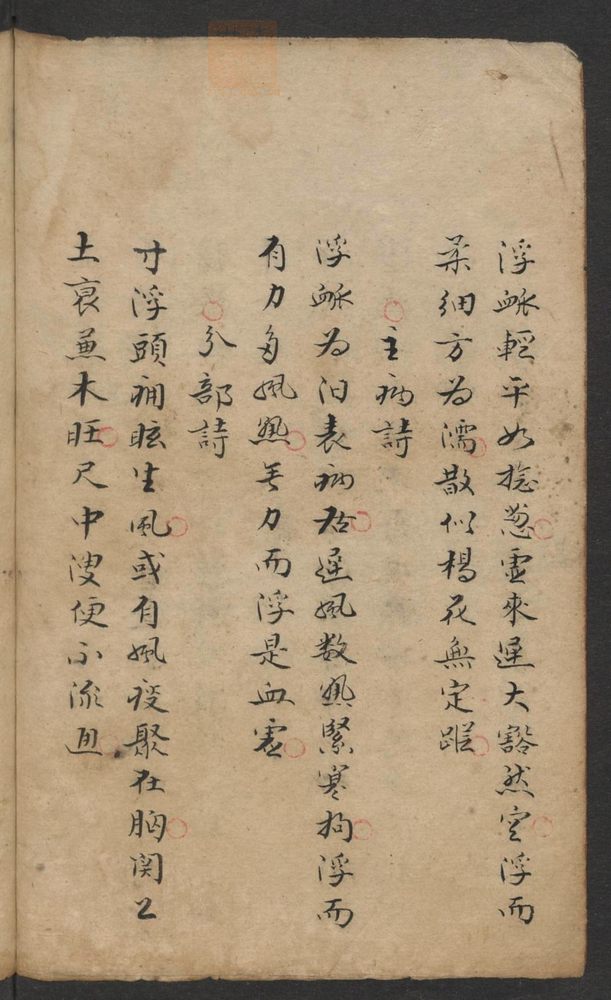 浮脉輕平似捻葱虚來遲大豁然空浮而
柔細方為濡散似楊花無定踪
主病詩
浮脉為阳表病居遲風数熱緊寒拘浮而
有力多風熱無力而浮是血虚
分部詩
寸浮頭痛眩生風或有風痰聚在胸関上
土衰兼木旺尺中溲便不流通